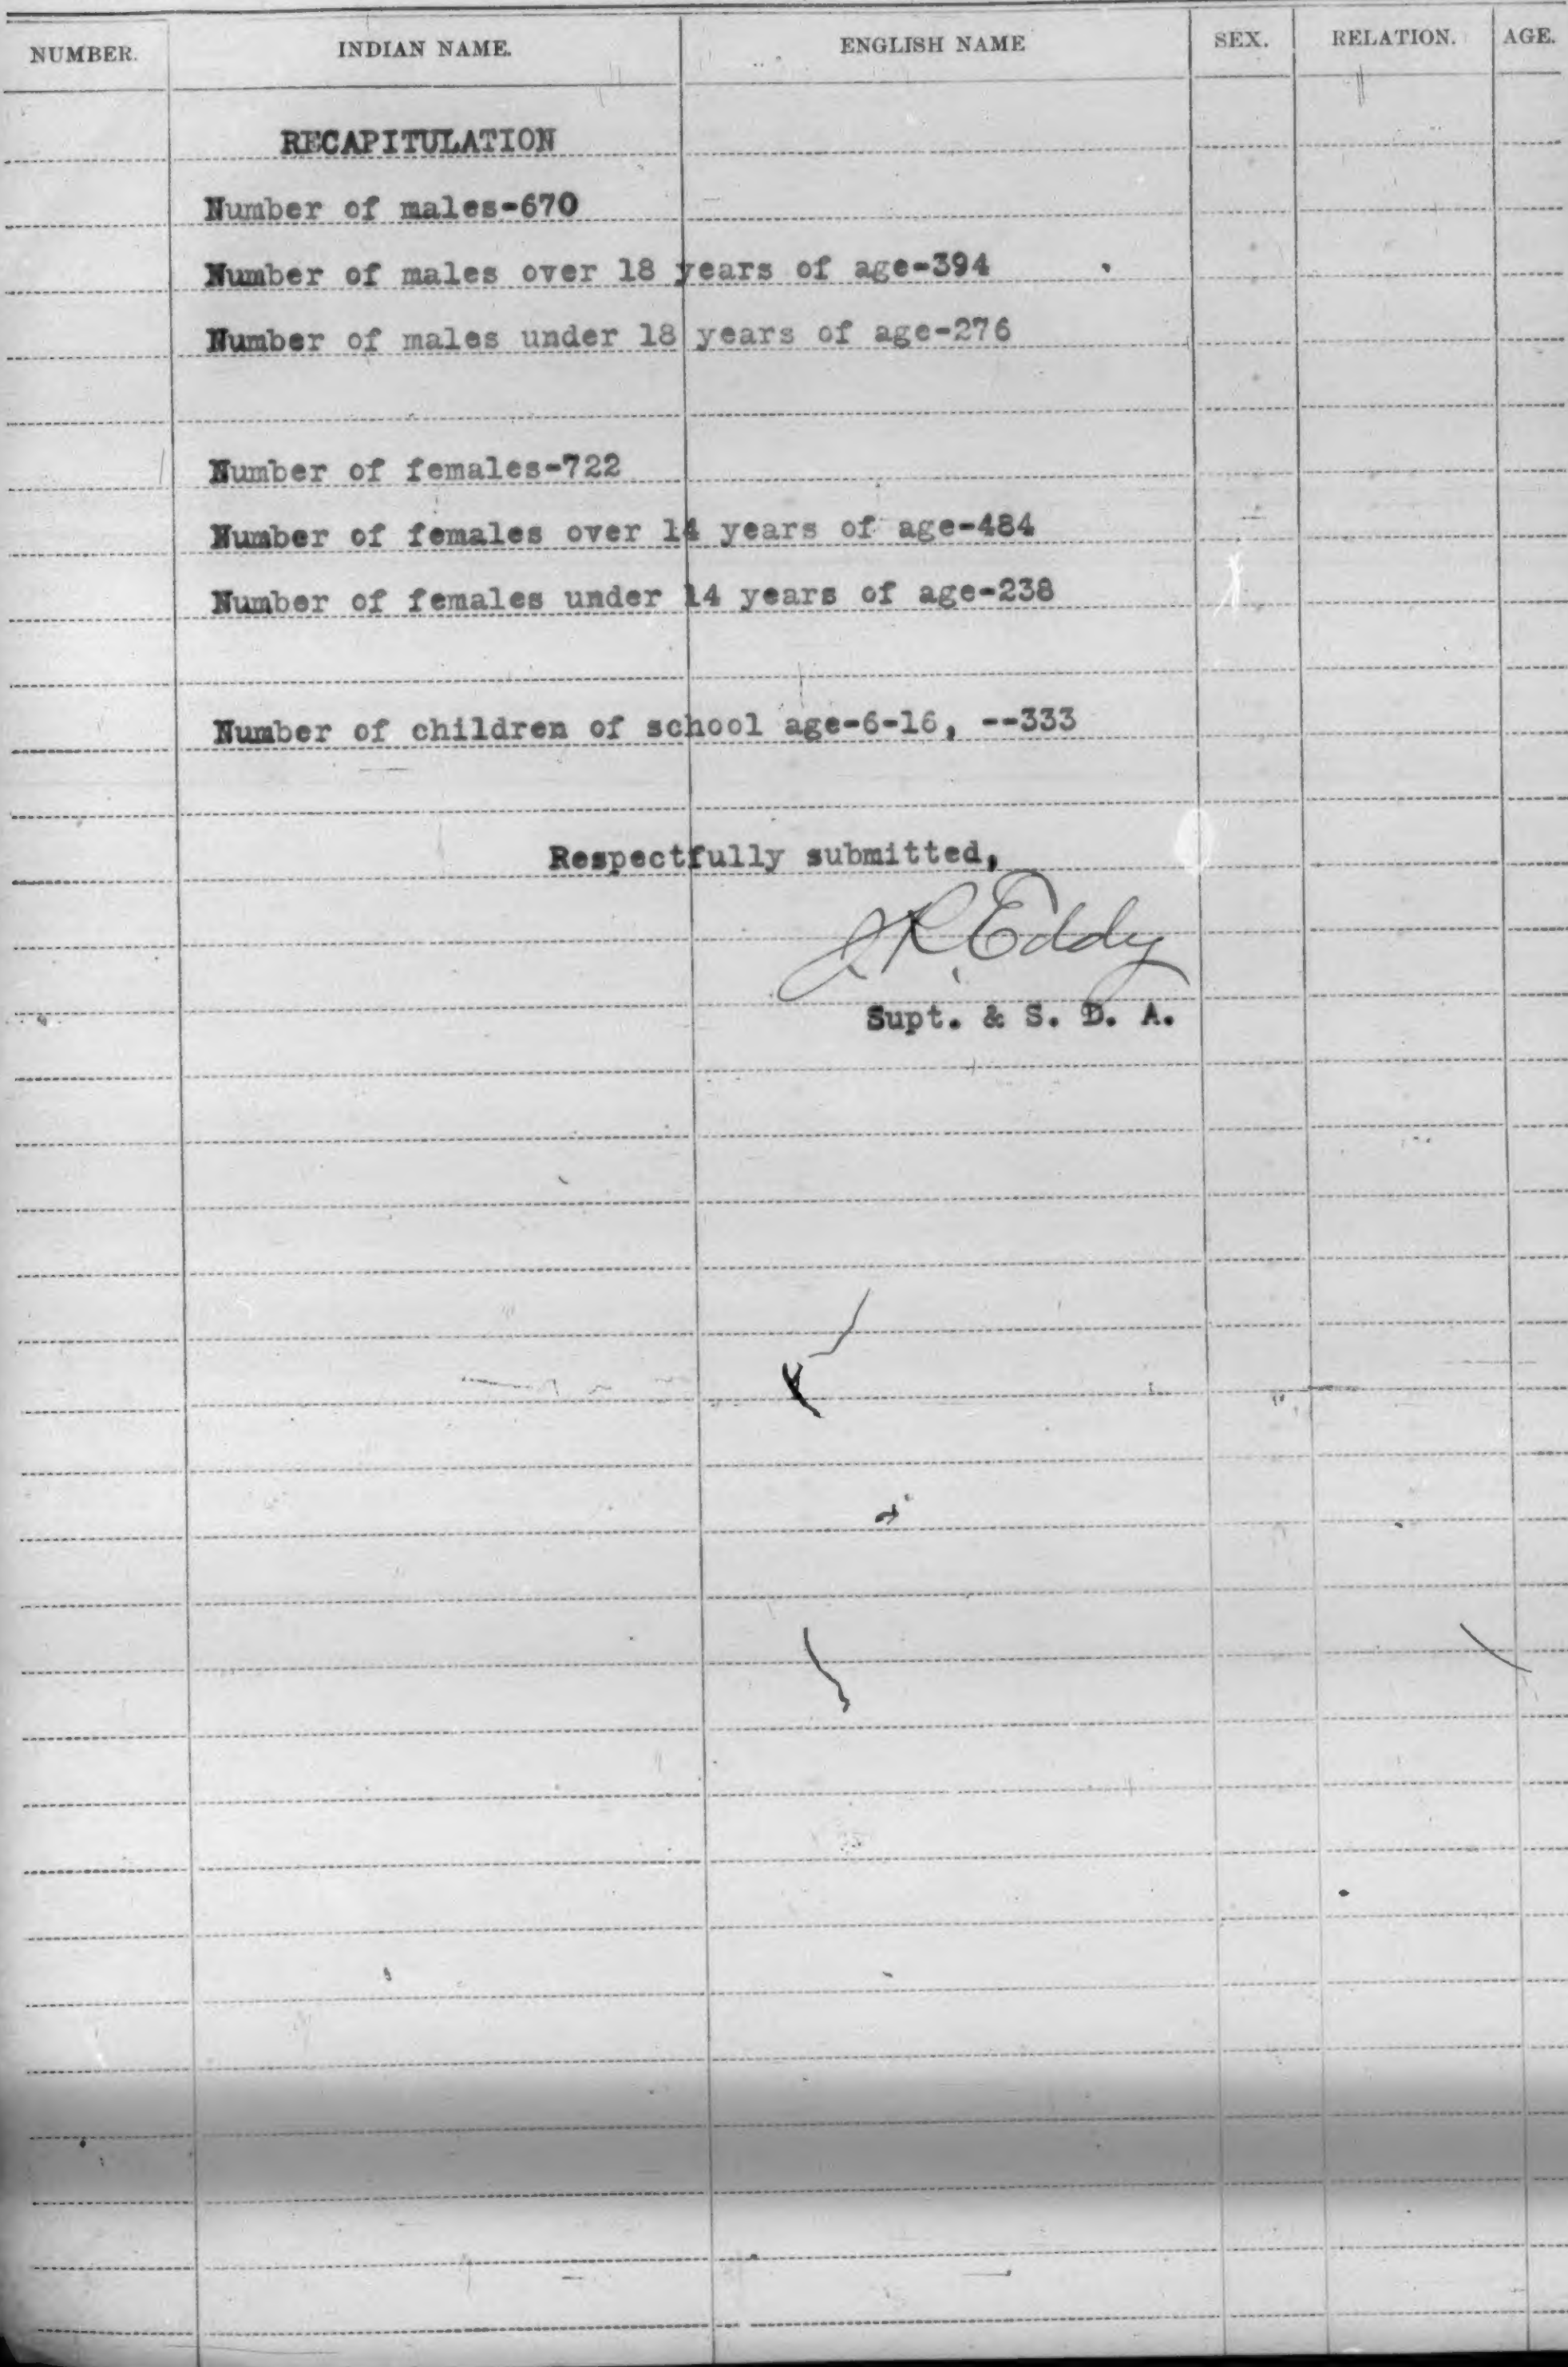 NUMBER. INDIAN NAME. ENGLISH NAME SEX. RELATION. AGE.
RECAPITULATION
Number of males-670
Number of males over 18 years of age-394
Number of males under 18 years of age-276
Number of females-722
Number of females over 14 years of age-484
Number of females under 14 years of age-238
Number of children of school age-6-16, --333
Respectfully submitted,
J R Eddy
Supt. & S. D. A.